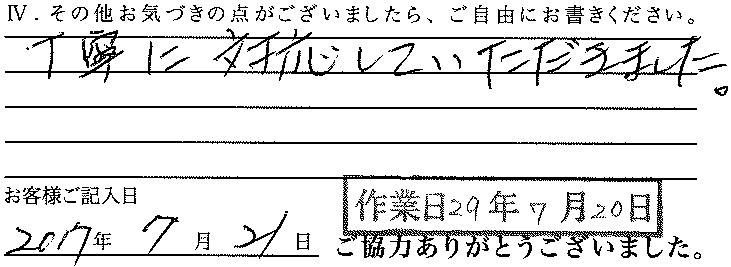 Ⅳ. その他お気づきの点がございましたら、ご自由にお書きください。
丁寧に対応していただきました。
お客様ご記入日
作業日29年7月20日
2017年 7月 21日
ご協力ありがとうございました。